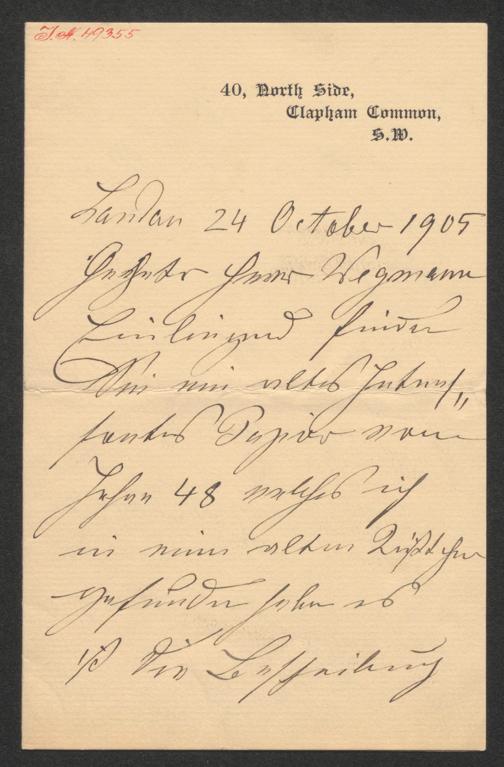 I.N. 49355
40, North Side,
Clapham Common,
S.W.
London 24 October 1905
Geehrter Herr Wegmann
Einliegend finden
Sie ein altes Intres¬
santes Papier vom
Jahre 48 welches ich
in einem alten Kistchen
gefunden habe es
ist die Beschreibung